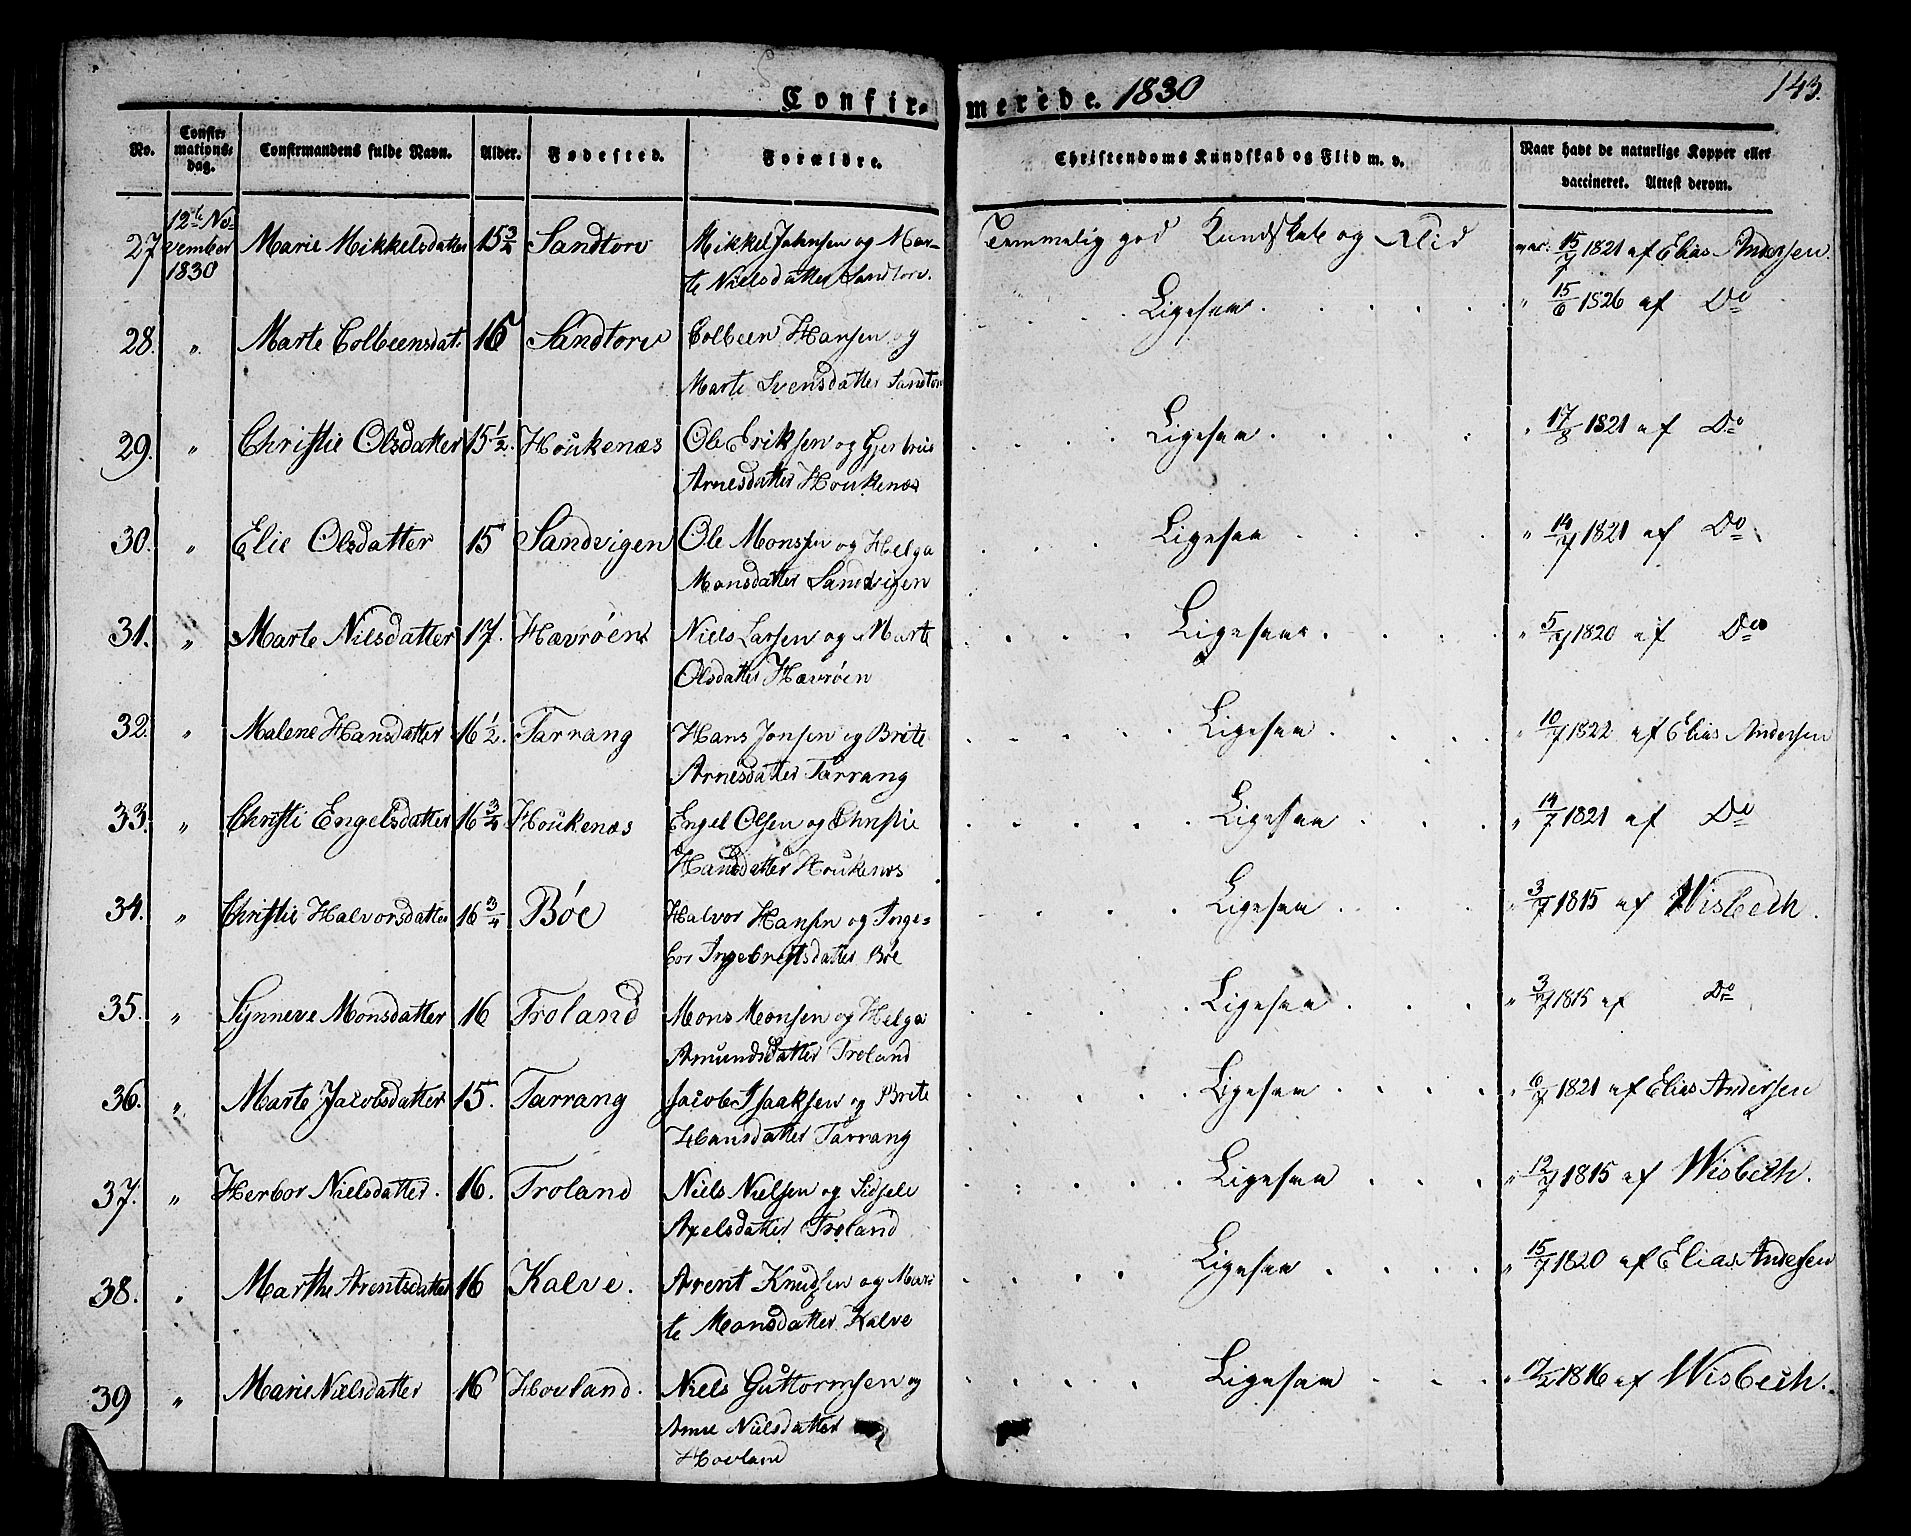 Confirmerede. 1830
143.
No. Confirmationsdag. Confirmandens fulde Navn. Alder. Fødested. Forældre. Christendoms Kundskab og Flid m. v. Naar havt de naturlige Kopper eller vaccineret. Attest derom.
27 12te November 1830 Marie Mikkelsdatter 15 3/4 Sandtorv Mikkel Johnsen og Mar-
te Nielsdatter Sandtorv. Temmelig god Kundskab og Flid vac. 15/7 1821 af Elias Andersen.
28. " Marte Colbeensdat. 16 Sandtorv Colbeen Hansen og
Marte Svensdatter Sandtorv Ligesaa " 15/6 1826 af Do
29. " Christie Olsdatter 15 1/2. Houkenæs Ole Eriksen og Gjertrud
Arnesdatter Houkenæs Ligesaa " 17/8 1821 af Do
30. " Elie Olsdatter 15 Sandvigen Ole Monsen og Helga
Monsdatter Sandvigen Ligesaa " 14/7 1821 af Do
31. " Marte Nilsdatter 17. Havrøen Niels Larsen og Marte
Olsdatter Hævrøen Ligesaa " 5/7 1820 af Do
32. " Malene Hansdatter 16 1/2. Tarrang Hans Jonsen og Brite
Arnesdatter Tarrang Ligesaa " 10/7 1822 af Elias Andersen
33. " Christi Engelsdatter 16 3/4 Houkenæs Engel Olsen og Christie
Hansdatter Houkenæs Ligesaa " 14/7 1821 af Do
34. " Christie Halvorsdatter 16 3/4 Bøe Halvor Hansen og Inge-
bor Ingebregtsdatter Bøe Ligesaa " 3/7 1815 af Wisbech.
35. " Synneve Monsdatter 16 Troland Mons Monsen og Helga
Amundsdatter Troland Ligesaa " 3/7 1815 af Do
36. " Marte Jacobsdatter 15. Tarrang Jacob Isaaksen og Brite
Hansdatter Tarrang Ligesaa " 6/7 1821 af Elias Andersen
37. " Herbor Nielsdatter. 16. Troland Niels Nielsen og Sidsele
Axelsdatter Troland Ligesaa " 12/7 1815 af Wisbech.
38. " Marthe Arentsdatter 16 Kalve. Arent Knudsen og Mari
te Monsdatter Kalve Ligesaa " 15/7 1820 af Elias Andersen
39 " Marie Nielsdatter 16 Hovland. Niels Guttormsen og
Anne Nielsdatter
Hovland Ligesaa " 1816 af Wisbech.